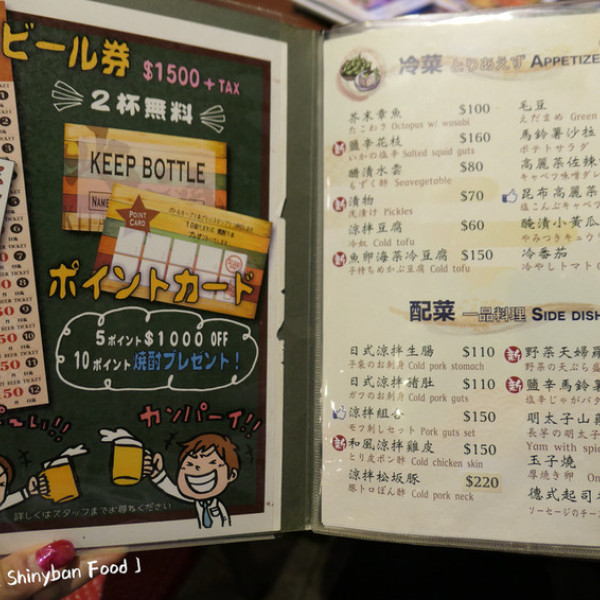 ビール券
$1500+TAX
2杯無料
KEEP BOTTLE
NAME
POINT CARD
ポイントカード
5ポイント$1000 OFF
10ポイント焼酎プレゼント!
カンパーイ!!
詳しくはスタッフまでお尋ねください
BEER TICKET
冷菜 とりあえず APPETIZE
芥末章魚 $100
たこわさ Octopus w/ wasabi
新 鹽辛花枝 $160
いかの塩辛 Salted squid guts
醋漬水雲 $80
もずく酢 Seavegetable
新 漬物 $70
浅漬け Pickles
涼拌豆腐 $60
冷奴 Cold tofu
新 魚卵海菜冷豆腐 $150
子持ちめかぶ豆腐 Cold tofu
毛豆
えだまめ Green
馬鈴薯沙拉
ポテトサラダ
高麗菜佐辣
キャベツ味噌ダレ
昆布高麗菜
塩こんぶキャベ
醃漬小黃瓜
やみつきキュウ
冷番茄
冷やしトマト
配菜 一品料理 SIDE DISH
日式涼拌生腸 $110
子袋のお刺身 Cold pork stomach
日式涼拌豬肚 $110
ガツのお刺身 Cold pork guts
涼拌組合 $150
モツ刺しセット Pork guts set
新 和風涼拌雞皮 $150
とり皮ポン酢 Cold chicken skin
涼拌松坂豚 $220
豚トロぽん酢 Cold pork neck
新 野菜天婦羅
野菜の天ぷら盛
新 鹽辛馬鈴薯
塩辛じゃがバタ
明太子山藥
長芋の明太子
Yam with spic
玉子燒
厚焼き卵 On
德式起司
ソーセージのチーズ
Shinyban Food 」